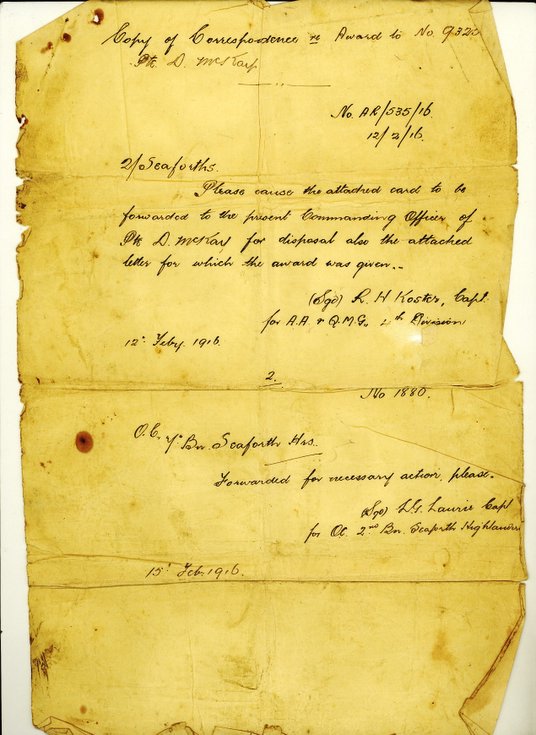 Copy of Correspondence re Award to No 932
Pte D. McKay
No. AR/535/16.
12/2/16.
2/Seaforths.
Please cause the attached card to be
forwarded to the present Commanding Officer of
Pte D. McKay for disposal also the attached
letter for which the award was given..
(Sgd) R. H Koster, Capt
for A.A. & Q.M.G. th Division
12. Feby. 1916.
2.
No 1880.
O.C. 7th Bn. Seaforth Hrs.
Forwarded for necessary action, please.
(Sgd) Laurie Capt
for OC. 2nd Bn. Seaforth Highlanders
15. Feb. 1916.